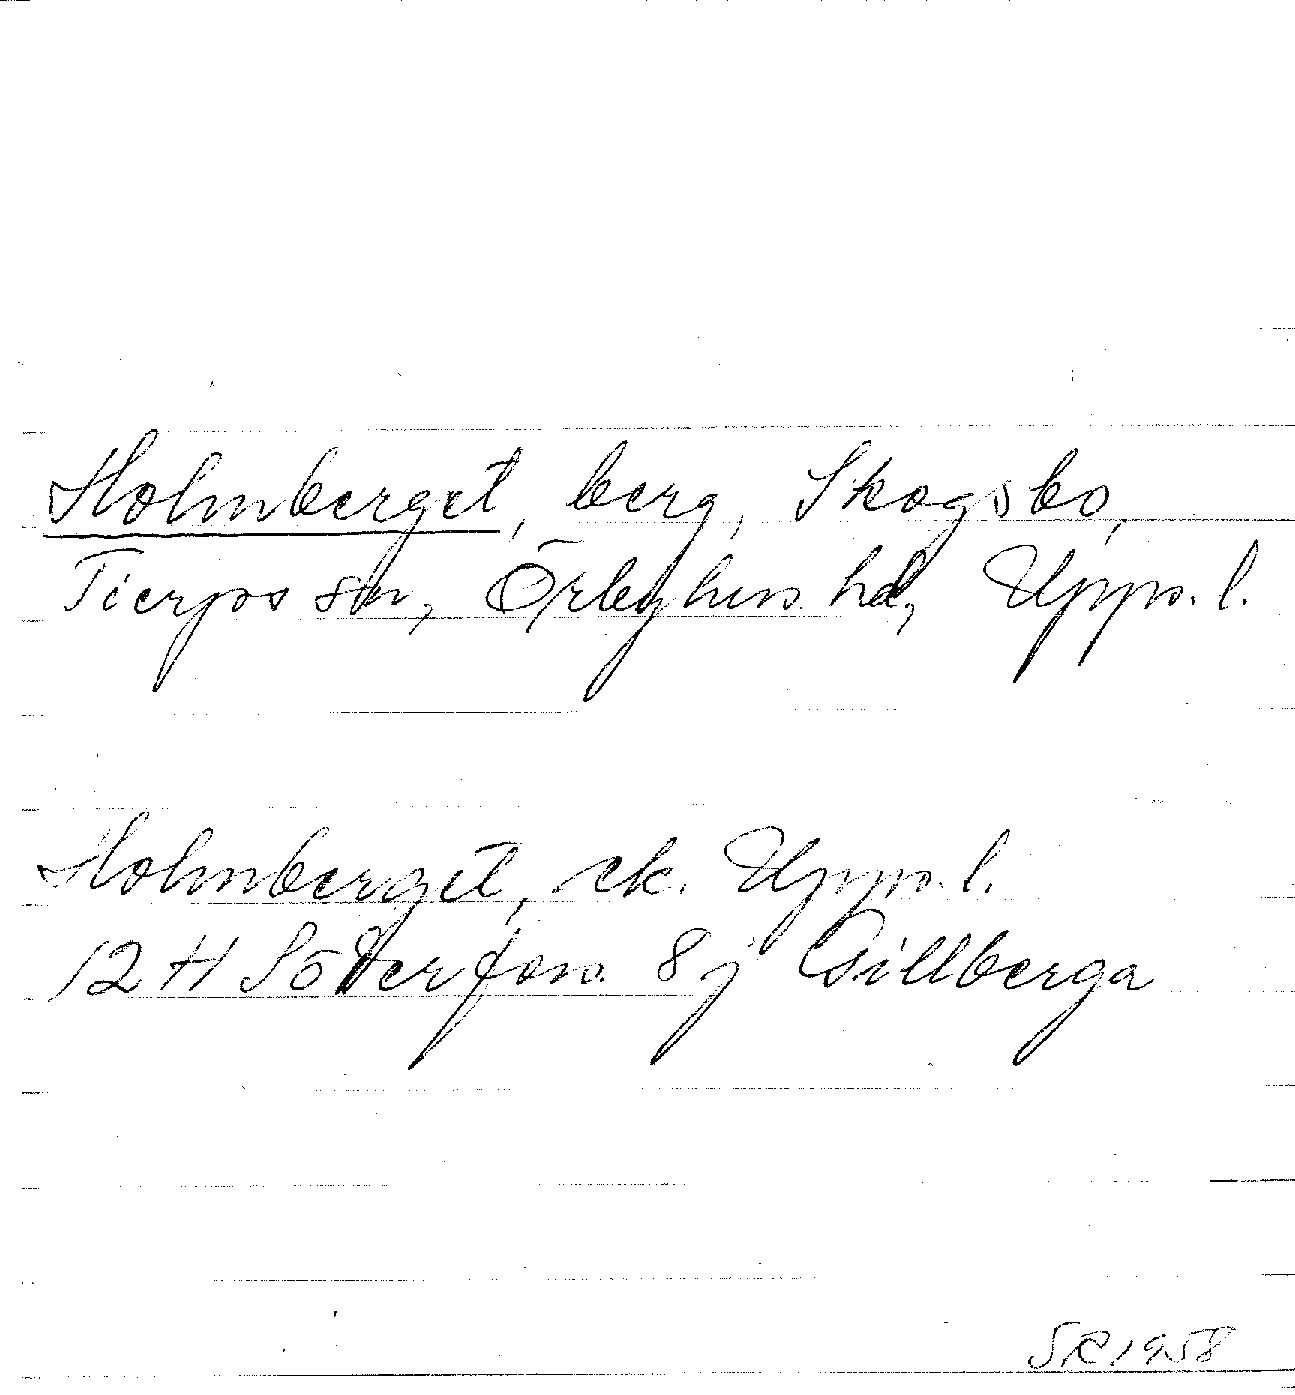 Holmberget, berg, Skogsbo,
Tierps sn, Örbyhus hd, Upps. l.
Holmberget, ek. Upps. l.
12 H Söderfors 8j Gillberga
SR 1958